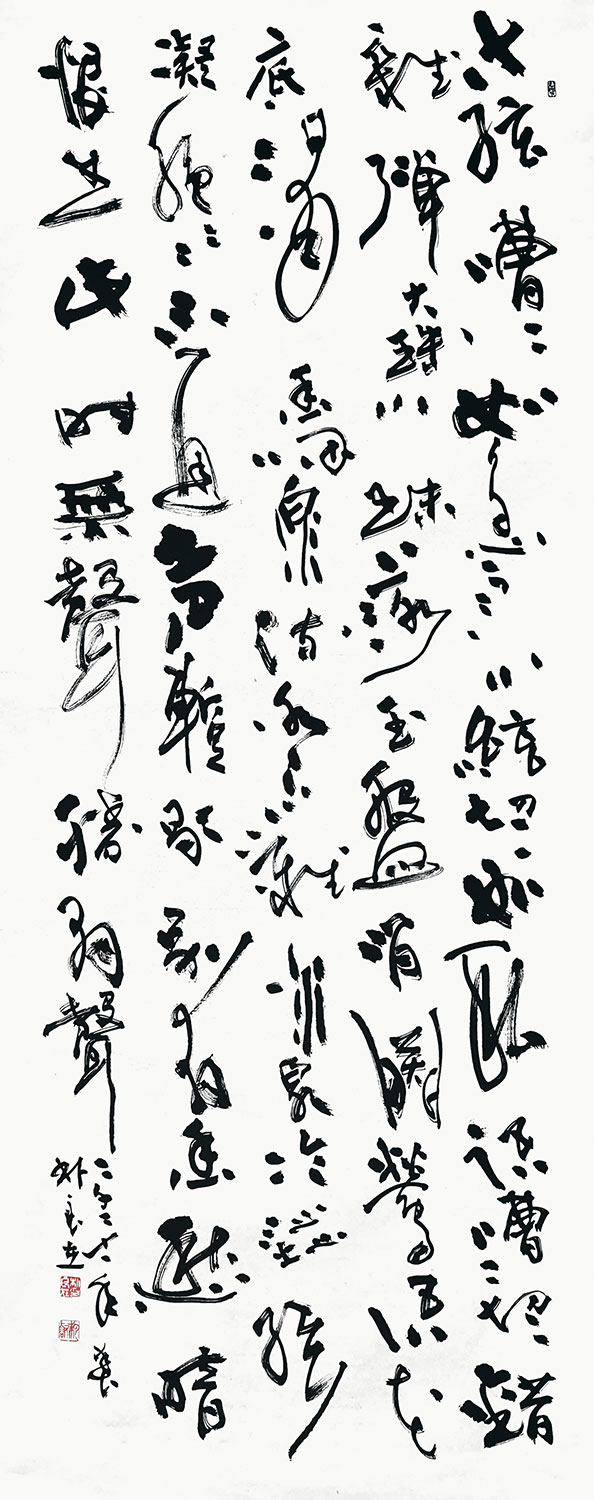 大弦嘈々如急雨小絃切々如私語嘈々切々錯
雜彈大珠小珠落玉盤間關鶯語花
底滑幽咽泉流冰下難冰泉冷澀絃
凝絕々々不通聲暫歇別有幽愁暗
恨生此時無聲勝有聲